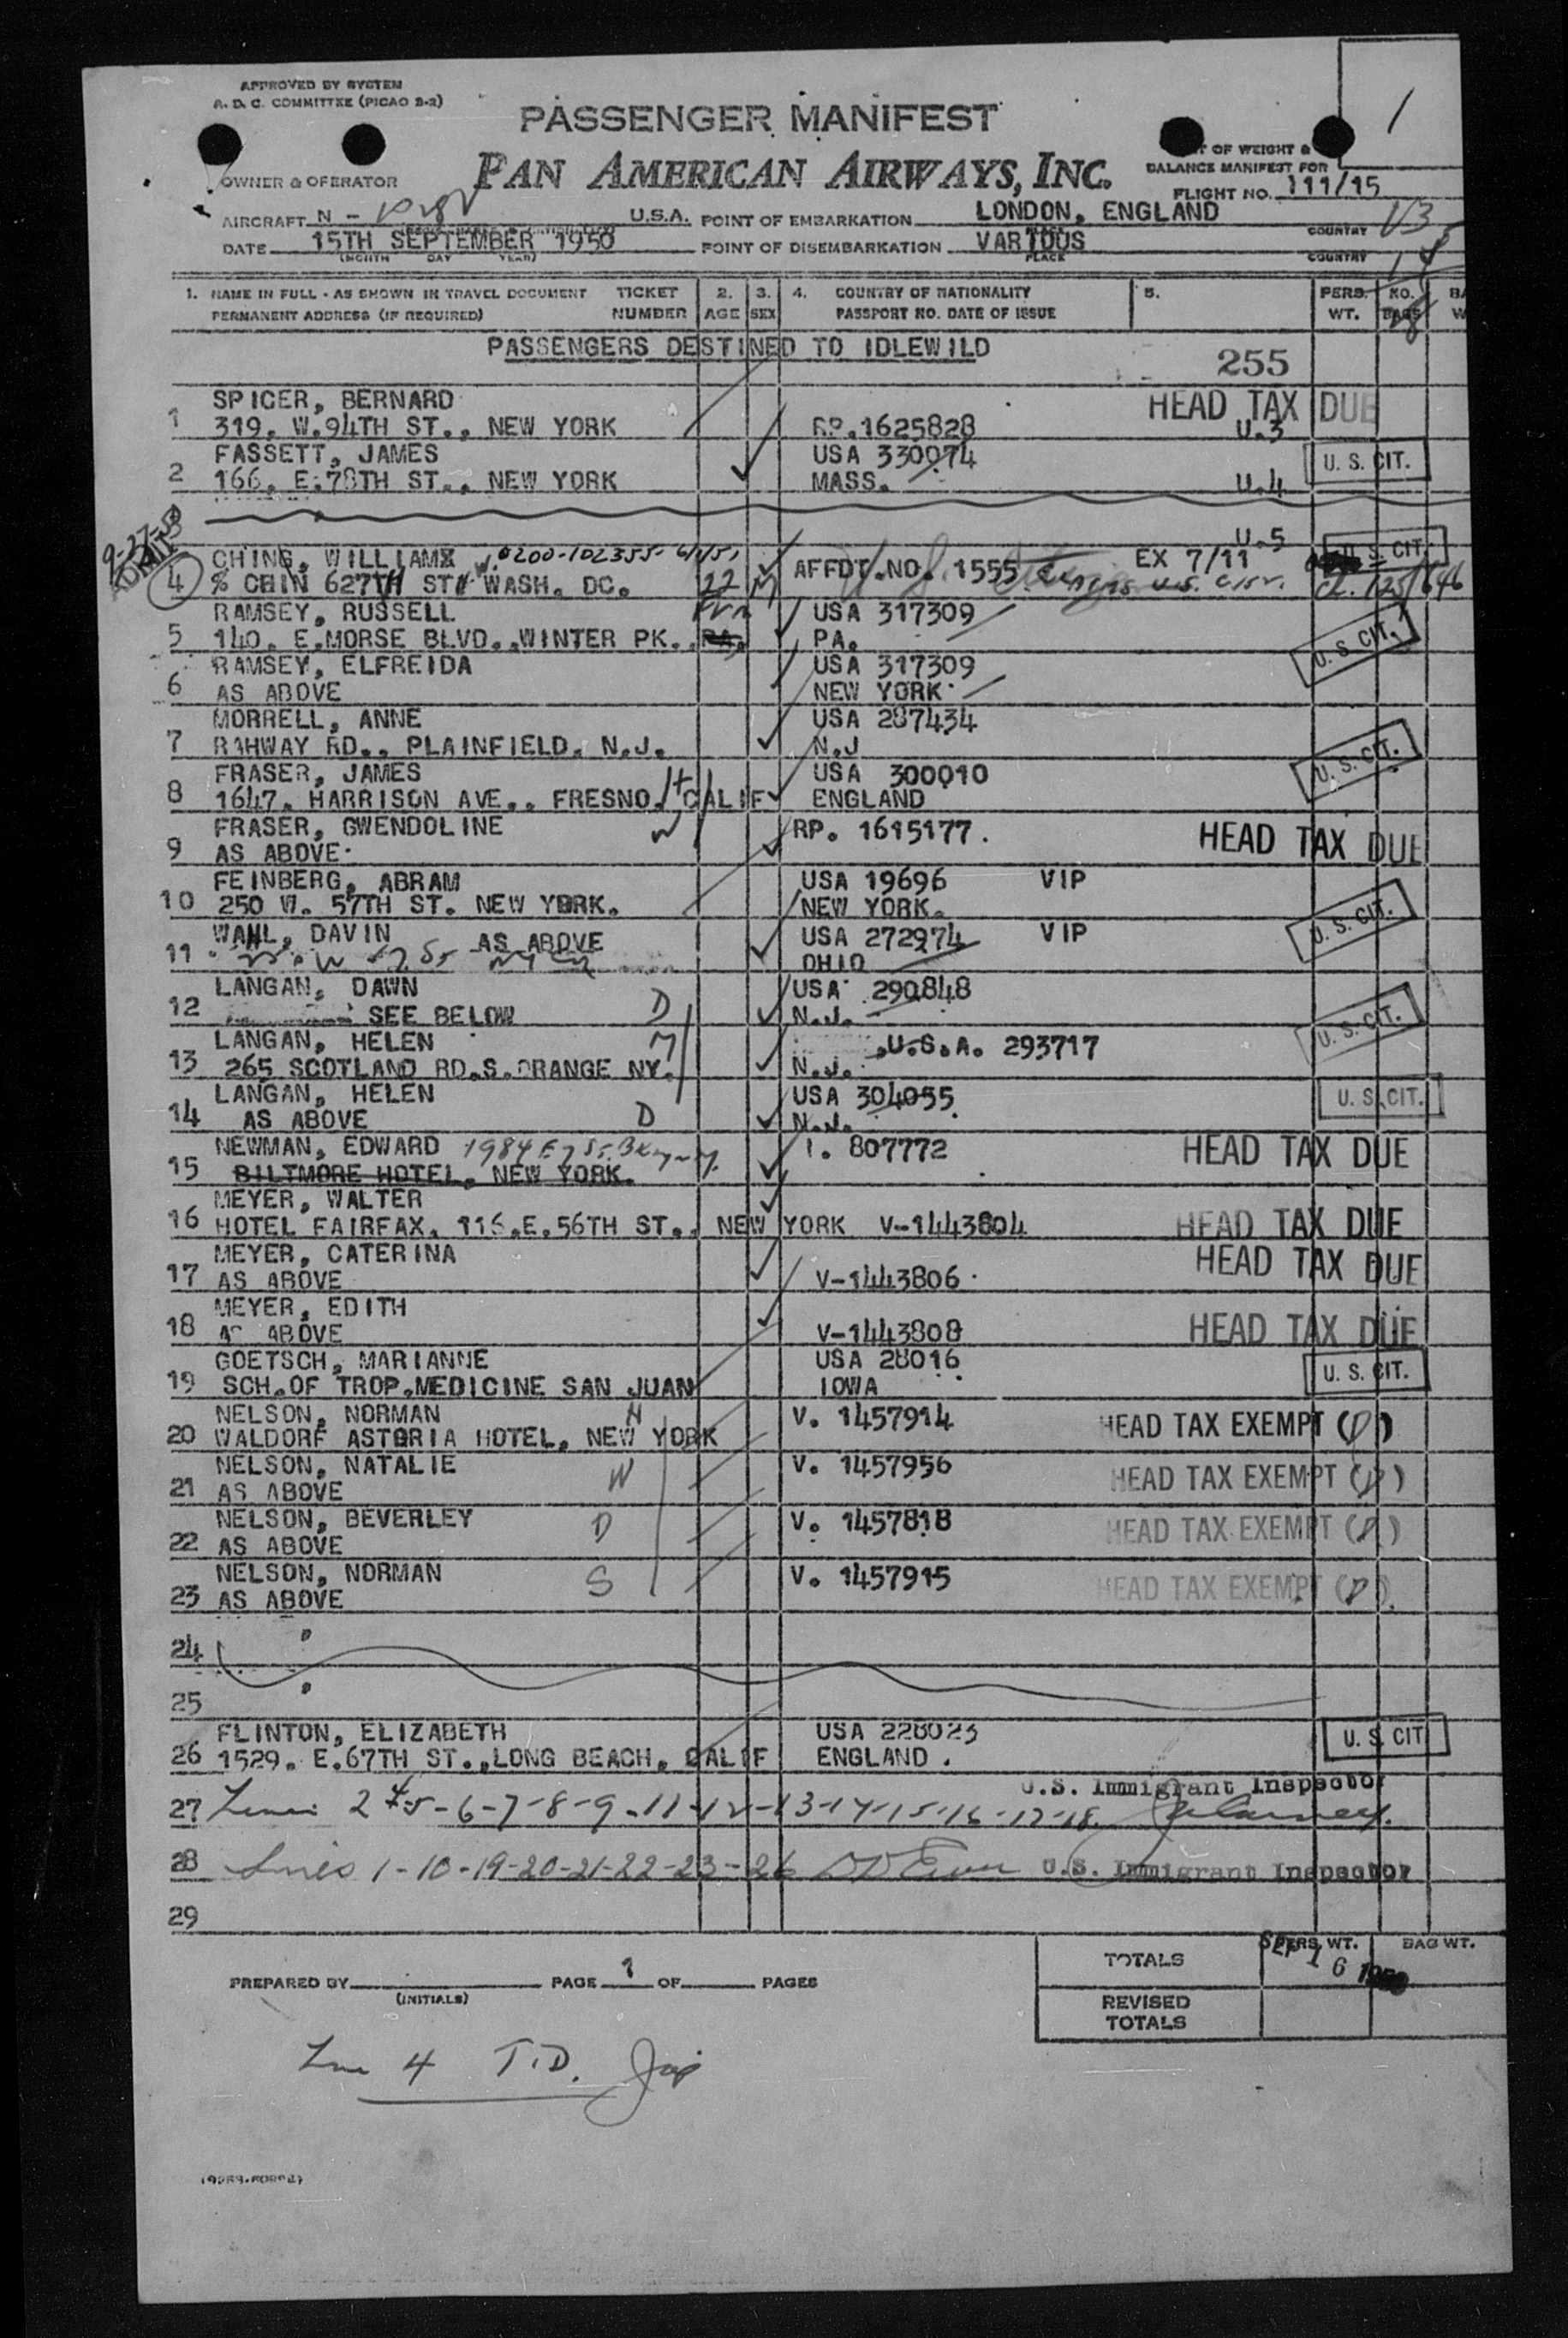 APPROVED BY SYSTEM
A. D. C. COMMITTEE (PICAO 2-2)
1
PASSENGER MANIFEST
PAN AMERICAN AIRWAYS, INC.
OWNER & OPERATOR
OF WEIGHT &
BALANCE MANIFEST FOR
FLIGHT NO. 111/15
AIRCRAFT N - U.S.A. POINT OF EMBARKATION LONDON, ENGLAND
COUNTRY
DATE 15TH SEPTEMBER 1950 POINT OF DISEMBARKATION VARIOUS
(MONTH DAY YEAR) PLACE COUNTRY
1. NAME IN FULL - AS SHOWN IN TRAVEL DOCUMENT TICKET 2. 3. 4. COUNTRY OF NATIONALITY 5. PERS. NO.
PERMANENT ADDRESS (IF REQUIRED) NUMBER AGE SEX PASSPORT NO. DATE OF ISSUE WT. BAGS
PASSENGERS DESTINED TO IDLEWILD
255
SPICER, BERNARD HEAD TAX DUE
1 319. W.94TH ST., NEW YORK RP.1625828 U.3
FASSETT, JAMES USA 330074 U. S. CIT.
2 166. E.78TH ST., NEW YORK MASS. U.4
U.5
9-27-50
ADMIT
CHING, WILLIAM W. 0200-102355- 6/1/51 EX 7/11 U. S. CIT.
4 % CHIN 627TH ST WASH. DC. 22 M AFFDT.NO. 1555
RAMSEY, RUSSELL USA 317309
5 140. E.MORSE BLVD.,WINTER PK. PA. U. S. CIT.
RAMSEY, ELFREIDA USA 317309
6 AS ABOVE NEW YORK
MORRELL, ANNE USA 287434
7 RAHWAY RD., PLAINFIELD, N.J. N.J U. S. CIT.
FRASER, JAMES USA 300010
8 1647. HARRISON AVE., FRESNO, CALIF ENGLAND
H
FRASER, GWENDOLINE W RP. 1615177. HEAD TAX DUE
9 AS ABOVE
FEINBERG, ABRAM USA 19696 VIP
10 250 W. 57TH ST. NEW YORK. NEW YORK. U. S. CIT.
WAHL, DAVIN AS ABOVE USA 272974 VIP
11 OHIO
LANGAN, DAWN USA 290848
12 SEE BELOW D N.J. U. S. CIT.
LANGAN, HELEN M U.S.A. 293717
13 265 SCOTLAND RD.S.ORANGE NY. N.J.
LANGAN, HELEN USA 304055 U. S. CIT.
14 AS ABOVE D N.J.
NEWMAN, EDWARD I. 807772 HEAD TAX DUE
15 BILTMORE HOTEL, NEW YORK.
MEYER, WALTER
16 HOTEL FAIRFAX, 116.E.56TH ST., NEW YORK V-1443804 HEAD TAX DUE
MEYER, CATERINA HEAD TAX DUE
17 AS ABOVE V-1443806
MEYER, EDITH
18 AS ABOVE V-1443808 HEAD TAX DUE
GOETSCH, MARIANNE USA 28016 U. S. CIT.
19 SCH.OF TROP.MEDICINE SAN JUAN IOWA
NELSON, NORMAN H V. 1457914 HEAD TAX EXEMPT
20 WALDORF ASTORIA HOTEL, NEW YORK
NELSON, NATALIE W V. 1457956 HEAD TAX EXEMPT
21 AS ABOVE
NELSON, BEVERLEY D V. 1457818 HEAD TAX EXEMPT
22 AS ABOVE
NELSON, NORMAN S V. 1457915 HEAD TAX EXEMPT
23 AS ABOVE
24
25
FLINTON, ELIZABETH USA 228023 U. S. CIT
26 1529. E.67TH ST.,LONG BEACH, CALIF ENGLAND.
U.S. Immigrant Inspector
27 2-5-6-7-8-9-11-12-13-14-15-16-17-18.
28 Lines 1-10-19-20-21-22-23-26 U.S. Immigrant Inspector
29
TOTALS PERS. WT. BAG WT.
SEP 16 1950
PREPARED BY PAGE 1 OF PAGES
(INITIALS)
REVISED
TOTALS
Line 4 T.D.